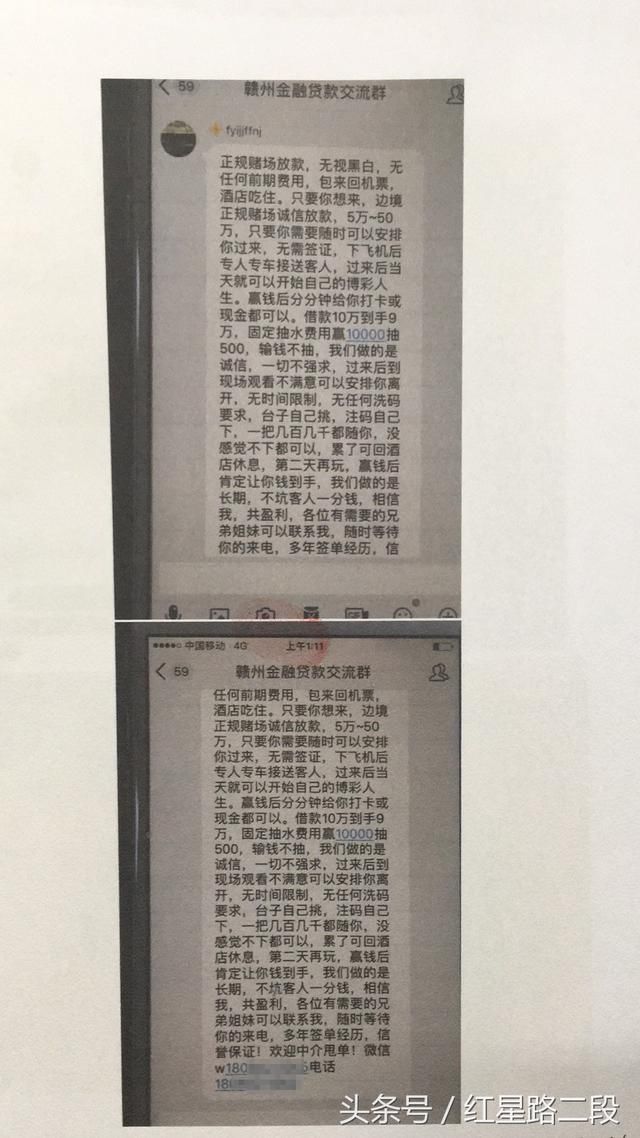 59
赣州金融贷款交流群
fyijjffnj
正规赌场放款，无视黑白，无
任何前期费用，包来回机票，
酒店吃住。只要你想来，边境
正规赌场诚信放款，5万~50
万，只要你需要随时可以安排
你过来，无需签证，下飞机后
专人专车接送客人，过来后当
天就可以开始自己的博彩人
生。赢钱后分分钟给你打卡或
现金都可以。借款10万到手9
万，固定抽水费用赢10000抽
500，输钱不抽，我们做的是
诚信，一切不强求，过来后到
现场观看不满意可以安排你离
开，无时间限制，无任何洗码
要求，台子自己挑，注码自己
下，一把几百几千都随你，没
感觉不下都可以，累了可回酒
店休息，第二天再玩，赢钱后
肯定让你钱到手，我们做的是
长期，不坑客人一分钱，相信
我，共盈利，各位有需要的兄
弟姐妹可以联系我，随时等待
你的来电，多年签单经历，信
中国移动 4G 上午1:11
59
赣州金融贷款交流群
任何前期费用，包来回机票，
酒店吃住。只要你想来，边境
正规赌场诚信放款，5万~50
万，只要你需要随时可以安排
你过来，无需签证，下飞机后
专人专车接送客人，过来后当
天就可以开始自己的博彩人
生。赢钱后分分钟给你打卡或
现金都可以。借款10万到手9
万，固定抽水费用赢10000抽
500，输钱不抽，我们做的是
诚信，一切不强求，过来后到
现场观看不满意可以安排你离
开，无时间限制，无任何洗码
要求，台子自己挑，注码自己
下，一把几百几千都随你，没
感觉不下都可以，累了可回酒
店休息，第二天再玩，赢钱后
肯定让你钱到手，我们做的是
长期，不坑客人一分钱，相信
我，共盈利，各位有需要的兄
弟姐妹可以联系我，随时等待
你的来电，多年签单经历，信
誉保证！欢迎中介甩单！微信
w180 电话
180
头条号 / 红星路二段